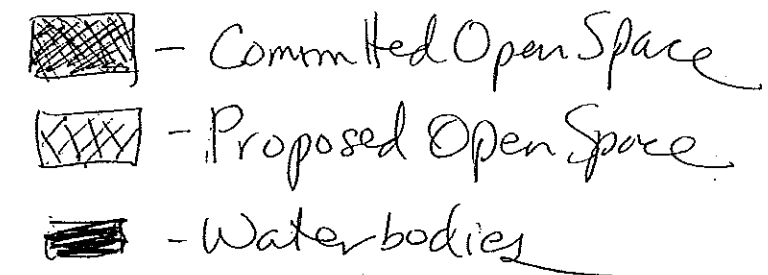 - Committed Open Space
- Proposed Open Space
- Waterbodies